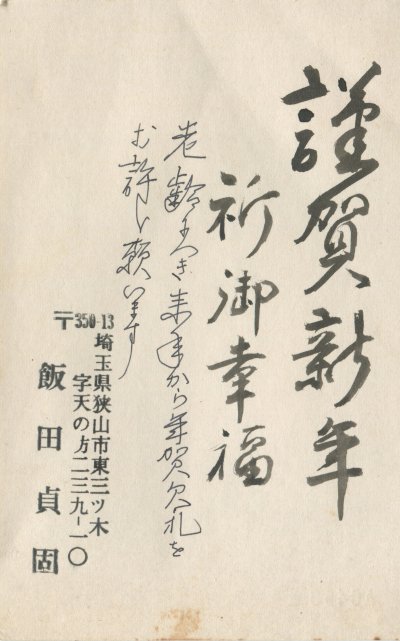 謹賀新年
祈御幸福
老齢につき来年から年賀欠礼を
お許し願います
〒350-13
埼玉県狭山市東三ツ木
字天の方二三九-一〇
飯田貞固